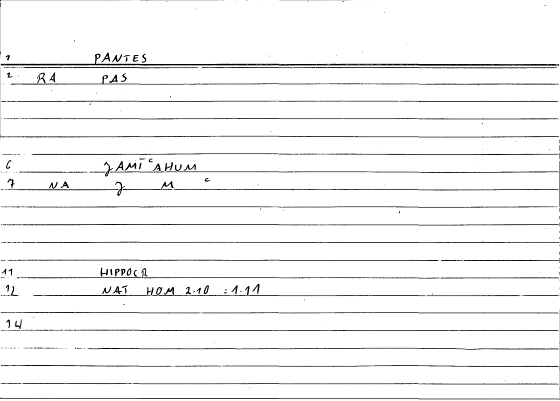 1 PANTES
2 RA PAS
6 ʒAMĪʿAHUM
7 NA ʒ M ʿ
11 HIPPOCR
12 NAT HOM 2.10 :1.11
14